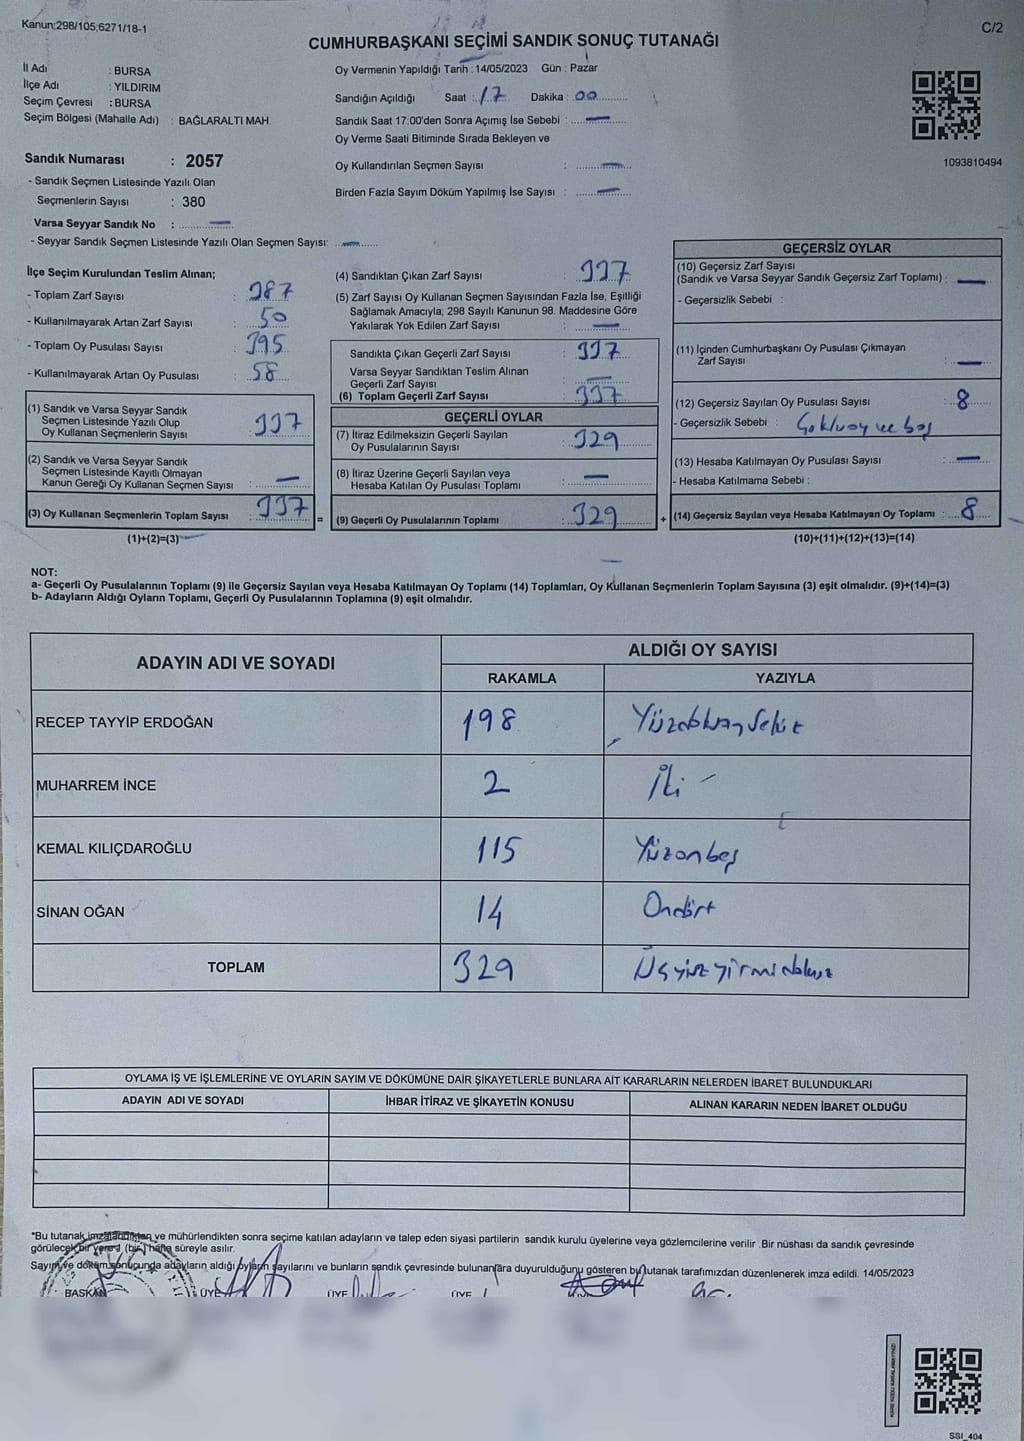 Kanun;298/105;6271/18-1
C/2
CUMHURBAŞKANI SEÇİMİ SANDIK SONUÇ TUTANAĞI
İl Adı : BURSA
İlçe Adı : YILDIRIM
Seçim Çevresi : BURSA
Seçim Bölgesi (Mahalle Adı) : BAĞLARALTI MAH.
Oy Vermenin Yapıldığı Tarih : 14/05/2023 Gün : Pazar
Sandığın Açıldığı Saat : 17 Dakika : 00
Sandık Saat 17:00'den Sonra Açımış İse Sebebi : —
Oy Verme Saati Bitiminde Sırada Bekleyen ve
Oy Kullandırılan Seçmen Sayısı : —
Birden Fazla Sayım Döküm Yapılmış İse Sayısı : —
1093810494
Sandık Numarası : 2057
- Sandık Seçmen Listesinde Yazılı Olan
Seçmenlerin Sayısı : 380
Varsa Seyyar Sandık No : —
- Seyyar Sandık Seçmen Listesinde Yazılı Olan Seçmen Sayısı: —
İlçe Seçim Kurulundan Teslim Alınan;
- Toplam Zarf Sayısı : 387
- Kullanılmayarak Artan Zarf Sayısı : 50
- Toplam Oy Pusulası Sayısı : 395
- Kullanılmayarak Artan Oy Pusulası : 58
(1) Sandık ve Varsa Seyyar Sandık
Seçmen Listesinde Yazılı Olup
Oy Kullanan Seçmenlerin Sayısı : 337
(2) Sandık ve Varsa Seyyar Sandık
Seçmen Listesinde Kayıtlı Olmayan
Kanun Gereği Oy Kullanan Seçmen Sayısı : —
(3) Oy Kullanan Seçmenlerin Toplam Sayısı : 337 =
(1)+(2)=(3)
(4) Sandıktan Çıkan Zarf Sayısı : 337
(5) Zarf Sayısı Oy Kullanan Seçmen Sayısından Fazla İse, Eşitliği
Sağlamak Amacıyla; 298 Sayılı Kanunun 98. Maddesine Göre
Yakılarak Yok Edilen Zarf Sayısı : —
Sandıkta Çıkan Geçerli Zarf Sayısı : 337
Varsa Seyyar Sandıktan Teslim Alınan
Geçerli Zarf Sayısı : —
(6) Toplam Geçerli Zarf Sayısı : 337
GEÇERLİ OYLAR
(7) İtiraz Edilmeksizin Geçerli Sayılan
Oy Pusulalarının Sayısı : 329
(8) İtiraz Üzerine Geçerli Sayılan veya
Hesaba Katılan Oy Pusulası Toplamı : —
(9) Geçerli Oy Pusulalarının Toplamı : 329 +
GEÇERSİZ OYLAR
(10) Geçersiz Zarf Sayısı
(Sandık ve Varsa Seyyar Sandık Geçersiz Zarf Toplamı) : —
- Geçersizlik Sebebi :
(11) İçinden Cumhurbaşkanı Oy Pusulası Çıkmayan
Zarf Sayısı : —
(12) Geçersiz Sayılan Oy Pusulası Sayısı : 8
- Geçersizlik Sebebi : ve boş
(13) Hesaba Katılmayan Oy Pusulası Sayısı : —
- Hesaba Katılmama Sebebi :
(14) Geçersiz Sayılan veya Hesaba Katılmayan Oy Toplamı : 8
(10)+(11)+(12)+(13)=(14)
NOT:
a- Geçerli Oy Pusulalarının Toplamı (9) ile Geçersiz Sayılan veya Hesaba Katılmayan Oy Toplamı (14) Toplamları, Oy Kullanan Seçmenlerin Toplam Sayısına (3) eşit olmalıdır. (9)+(14)=(3)
b- Adayların Aldığı Oyların Toplamı, Geçerli Oy Pusulalarının Toplamına (9) eşit olmalıdır.
ADAYIN ADI VE SOYADI
ALDIĞI OY SAYISI
RAKAMLA YAZIYLA
RECEP TAYYİP ERDOĞAN 198 Yüzdoksansekiz
MUHARREM İNCE 2 İki
KEMAL KILIÇDAROĞLU 115 Yüzonbeş
SİNAN OĞAN 14 Ondört
TOPLAM 329 Üçyüzyirmidokuz
OYLAMA İŞ VE İŞLEMLERİNE VE OYLARIN SAYIM VE DÖKÜMÜNE DAİR ŞİKAYETLERLE BUNLARA AİT KARARLARIN NELERDEN İBARET BULUNDUKLARI
ADAYIN ADI VE SOYADI İHBAR İTİRAZ VE ŞİKAYETİN KONUSU ALINAN KARARIN NEDEN İBARET OLDUĞU
*Bu tutanak imzalandıktan ve mühürlendikten sonra seçime katılan adayların ve talep eden siyasi partilerin sandık kurulu üyelerine veya gözlemcilerine verilir .Bir nüshası da sandık çevresinde
görülecek bir yere 1 (bir) hafta süreyle asılır.
Sayım ve döküm sonucunda adayların aldığı oyların sayılarını ve bunların sandık çevresinde bulunanlara duyurulduğunu gösteren bu tutanak tarafımızdan düzenlenerek imza edildi. 14/05/2023
BAŞKAN ÜYE ÜYE ÜYE
SSI_404